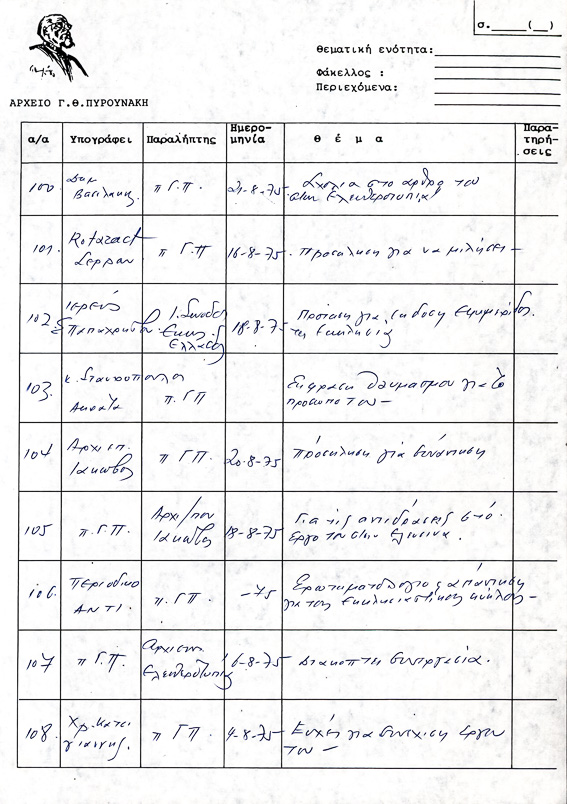 σ.____(__)
θεματική ενότητα:
Φάκελλος :
Περιεχόμενα:
ΑΡΧΕΙΟ Γ.Θ.ΠΥΡΟΥΝΑΚΗ
α/α Υπογράφει Παραλήπτης Ημερο-μηνία θ έ μ α Παρα-τηρή-σεις
100 Βασιλάκης π Γ.Π. 21-8-75 Σχόλια στο άρθρο του
στην Ελευθεροτυπία
101 Rotaract Σερρών π Γ.Π 16-8-75 Πρόσκληση για να μιλήσει -
102 ιερεύς Ι. Σύνοδο Εκκ. Ελλάδος 18-8-75 Πρόταση για έκδοση εφημερίδος.
της Εκκλησίας
103. κ. Σταυροπούλου π. ΓΠ Έκφραση θαυμασμού για το
πρόσωπό του -
104 Αρχιεπ. Ιάκωβος π ΓΠ. 20-8-75 Πρόσκληση για συνάντηση
105 π. Γ.Π. Αρχι/πον Ιάκωβο 18-8-75 Για τις αντιδράσεις στό
έργο του στην Ελευσίνα.
106. περιοδικό ΑΝΤΙ. π. ΓΠ -75 Ερωτηματολόγιο απάντηση
για τους εκκλησιαστικούς κύκλους -
107 π Γ.Π. Ελευθεροτυπίας 6-8-75 Διακόπτει συνεργασία.
108. Χρ. Γιάννης. π ΓΠ 4-8-75 Ευχές για συνέχιση έργου
του -